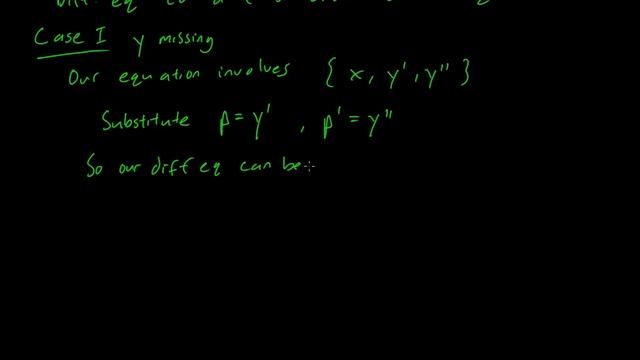 Case I y missing
Our equation involves { x, y', y'' }
Substitute p = y' , p' = y''
So our diff eq can be